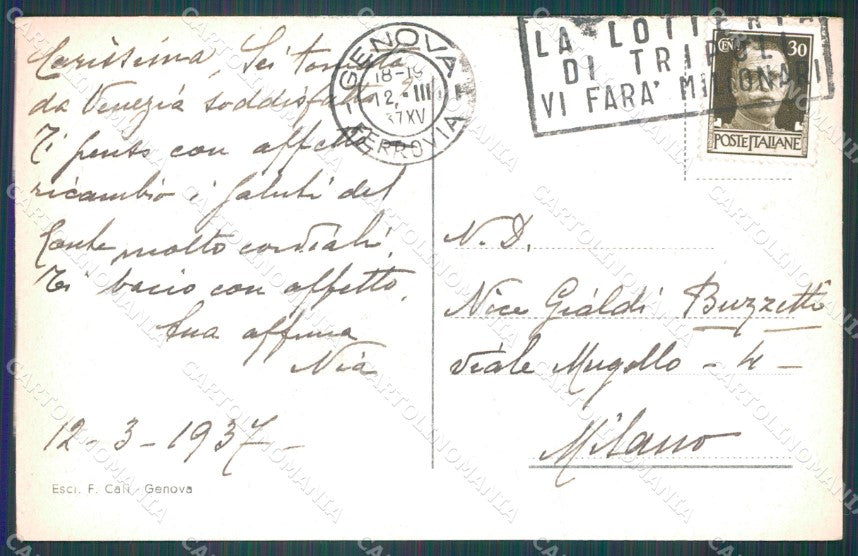 Carissima, Sei tornata
da Venezia soddisfatta
Ti penso con affetto
ricambio i saluti del
Conte molto cordiali,
Ti bacio con affetto,
tua affma
12-3-1937-
Esci. F. Cali - Genova
GENOVA
18-19
12. III
37 XV
FERROVIA
LA LOTTERIA
DI TRIPOLI
VI FARA' MILIONARI
CEN 30
POSTE ITALIANE
N. D.
Nice Gialdi Buzzetti
Viale Mugello - 4 -
Milano
CARTOLINOMANIA